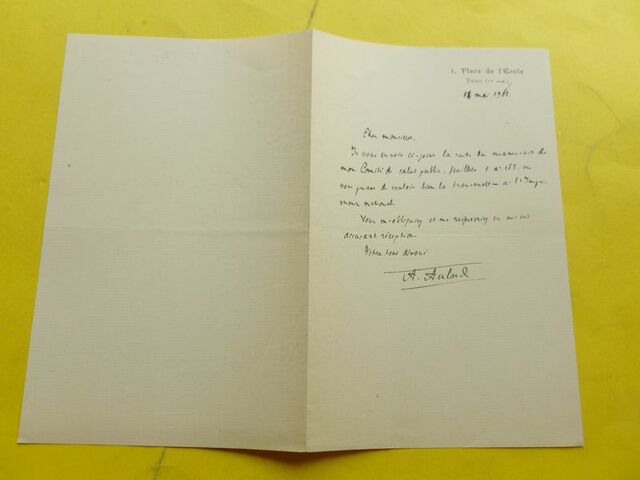 1, Place de l'École
Paris (1er arr.)
14 mai 190
Cher monsieur,
Je vous envoie ci-joint la suite du manuscrit de
mon Comité de salut public, feuillets 1 à 163, en
vous priant de vouloir bien la transmettre à l'Impri-
merie nationale.
Vous m'obligerez et me rassurerez en m'en
accusant réception.
Votre tout dévoué
A. Aulard